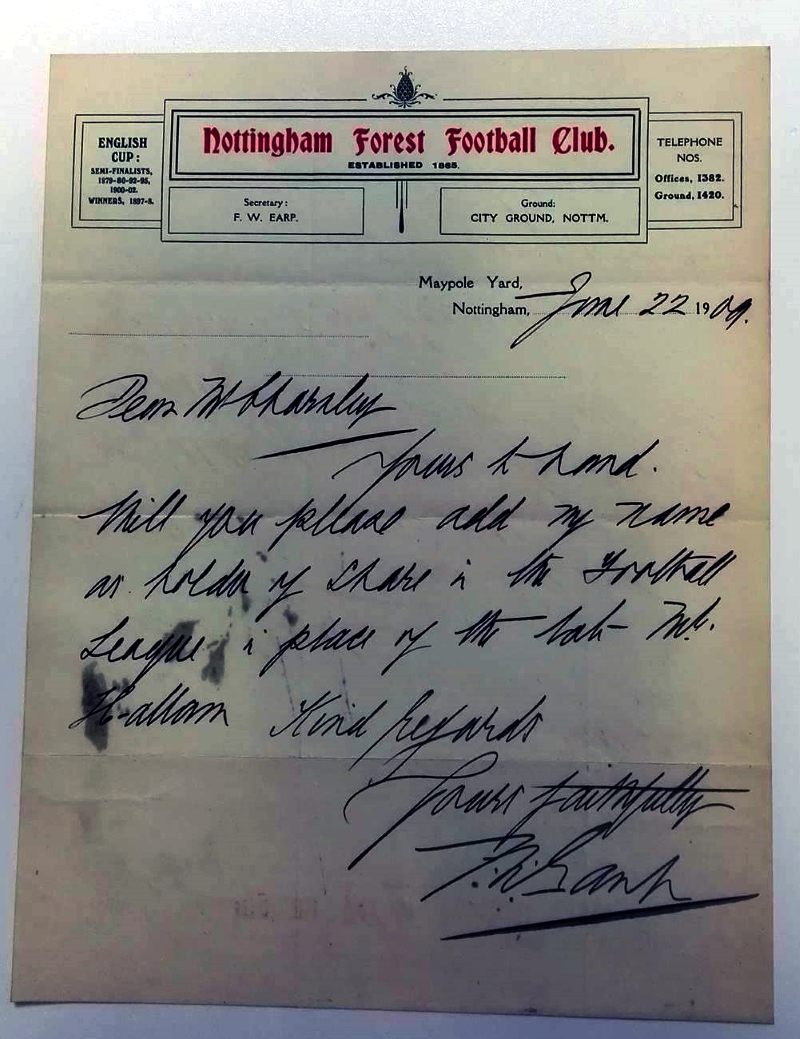 ENGLISH
CUP:
SEMI-FINALISTS,
1879-80-92-95,
1900-02.
WINNERS, 1897-8.
Nottingham Forest Football Club.
ESTABLISHED 1865.
TELEPHONE
NOS.
Offices, 1382.
Ground, 1420.
Secretary:
F. W. EARP.
Ground:
CITY GROUND, NOTTM.
Maypole Yard,
Nottingham, June 22 1909.
Dear Mr Charnley
Yours to hand.
Will you please add my name
as holder of share in the Football
League in place of the late Mr.
Hallam Kind regards
Yours faithfully
F. W. Earp